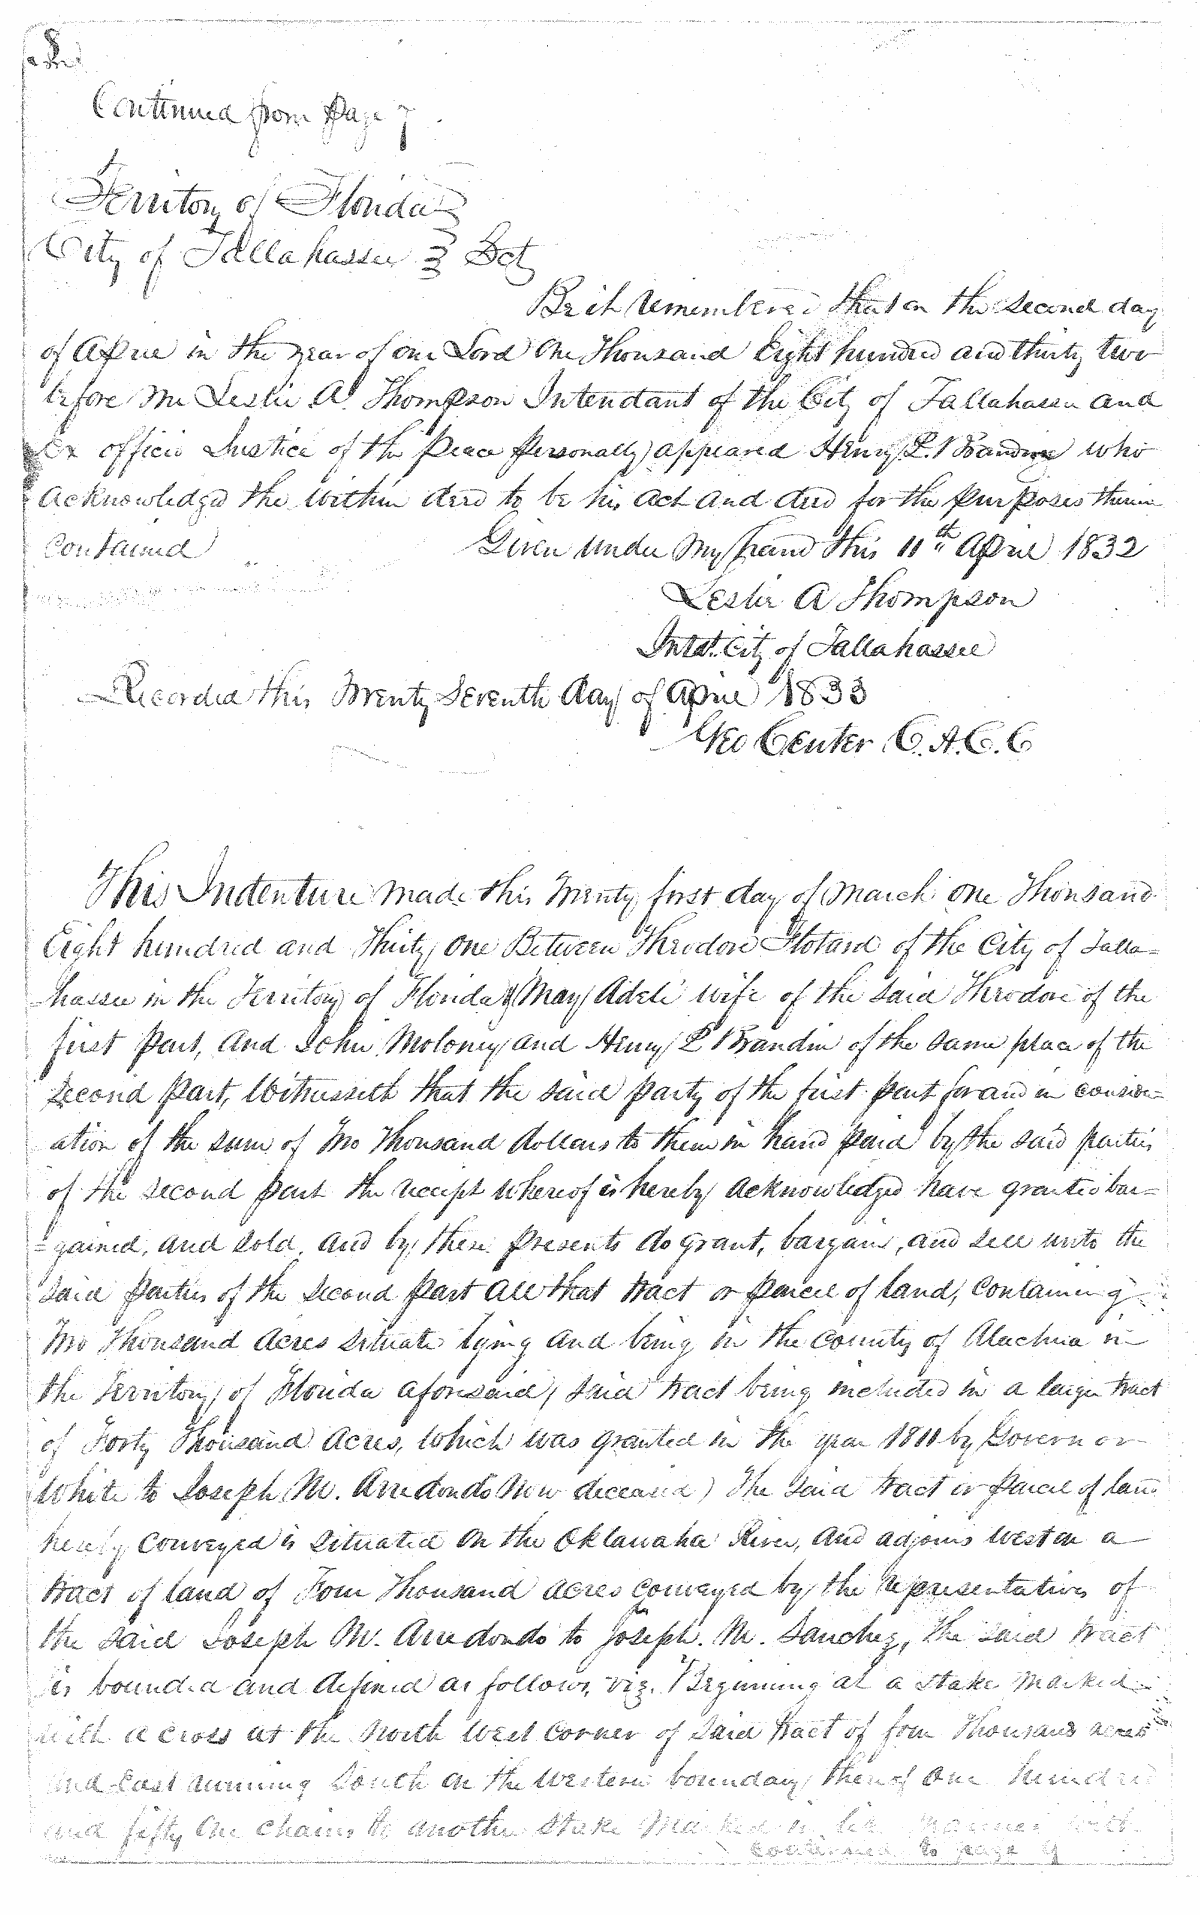 8
Continued from Page 7
Territory of Florida
City of Tallahassee } Sct
Be it remembered that on the second day
of April in the year of our Lord One Thousand Eight hundred and thirty two
before me Leslie A. Thompson Intendant of the City of Tallahassee and
Ex officio Justice of the Peace Personally appeared Henry L. Brandin who
acknowledged the within deed to be his act and deed for the purposes therein
contained Given under my hand this 11th April 1832
Leslie A Thompson
Intdt. City of Tallahassee
Recorded this Twenty Seventh day of April 1833
Geo Center C. A. C. C
This Indenture made this Twenty first day of March One Thousand
Eight hundred and Thirty One Between Throdore Flotard of the City of Talla=
hassee in the Territory of Florida & Mary Adele wife of the said Throdore of the
first Part, And John Moloney and Henry L Brandin of the same place of the
Second Part, Witnesseth that the said party of the first part for and in consider=
ation of the sum of Two Thousand dollars to them in hand Paid by the said parties
of the second part the receipt whereof is hereby acknowledged have granted bar=
=gained, and sold, and by these presents do grant, bargain, and sell unto the
said parties of the second Part All that tract or parcel of land, containing
Two Thousand Acres situate lying and being in the county of Alachua in
the Territory of Florida aforesaid, said tract being included in a larger tract
of Forty Thousand Acres, which was granted in the year 1811 by Governor
White to Joseph M. Arredondo (now deceased) The said tract or parcel of land
hereby conveyed is situated on the Oklawaha River, and adjoins West on a
tract of land of Four Thousand acres conveyed by the representatives of
the said Joseph M. Arredondo to Joseph. M. Sanchez, the said tract
is bounded and defined as follows, viz. Beginning at a stake marked
with a cross at the North West corner of said tract of four thousand acres
and East running South on the Western boundary thereof One hundred
and fifty One chains to another stake marked in like manner with
continued to page 9